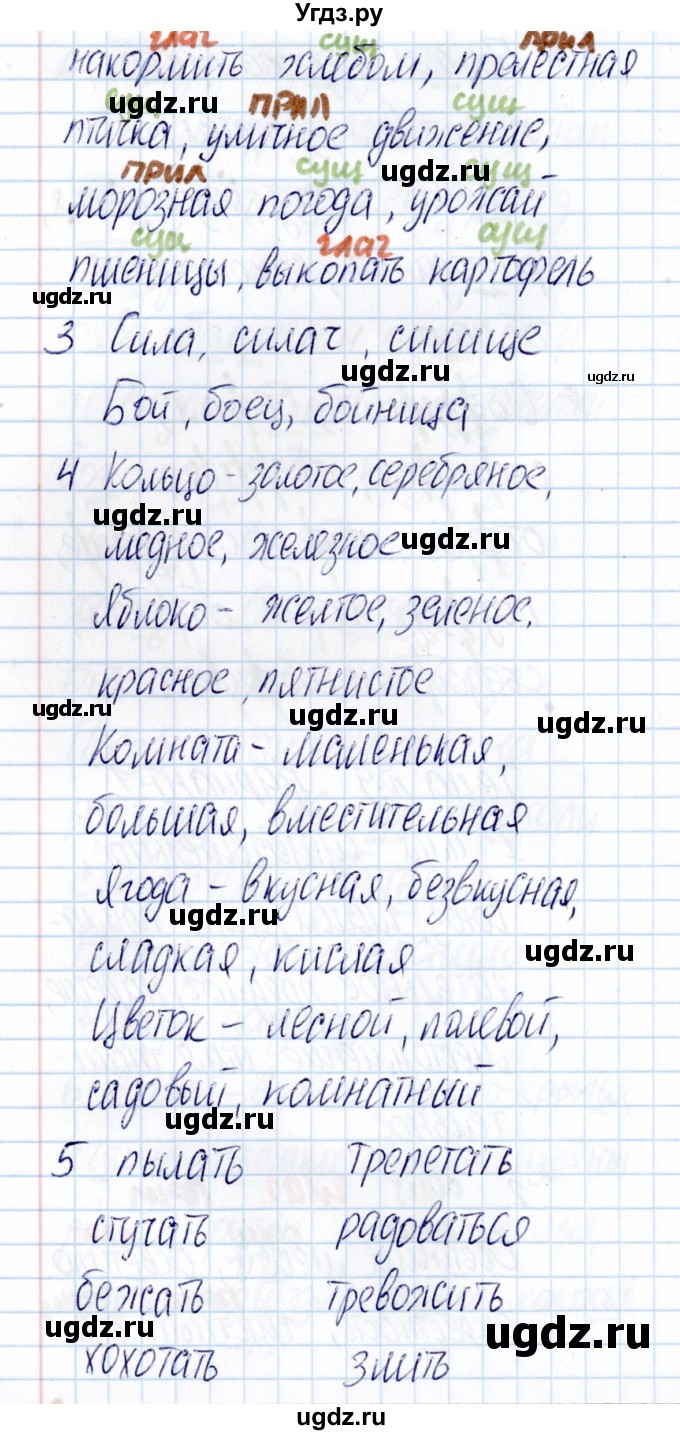 Угдз.ру
глаг сущ прил
накормить хлебом, прелестная
сущ ugdz.ru прил сущ
птичка, уличное движение,
ugdz.ru
прил сущ сущ
морозная погода, урожай
сущ глаг сущ
пшеницы, выкопать картофель
ugdz.ru ugdz.ru
3 Сила, силач, силище
ugdz.ru ugdz.ru
Бой, боец, бойница
4 Кольцо - золотое, серебряное,
ugdz.ru ugdz.ru
медное, железное
Яблоко - желтое, зеленое,
красное, пятнистое
ugdz.ru ugdz.ru ugdz.ru
Комната - маленькая,
большая, вместительная
Ягода - вкусная, безвкусная,
ugdz.ru
сладкая, кислая
ugdz.ru
Цветок - лесной, полевой,
садовый, комнатный
ugdz.ru
5 пылать трепетать
стучать радоваться
бежать тревожить
ugdz.ru ugdz.ru
хохотать злить
ugdz.ru